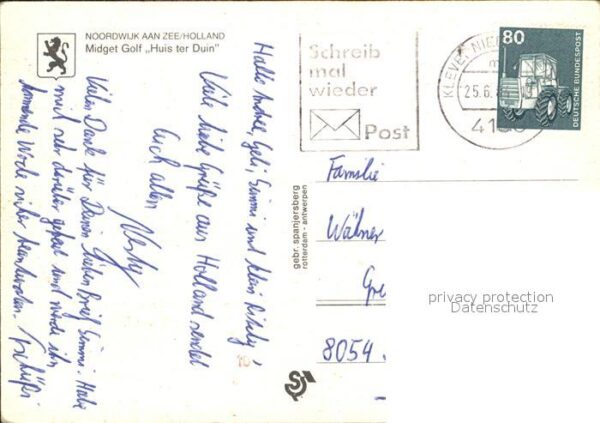 NOORDWIJK AAN ZEE/HOLLAND
Midget Golf „Huis ter Duin"
Hallo Andrea, Geli, Simmi und klein Risely!
Viele liebe Grüße aus Holland sendet
Euch allen
Vielen Dank für Deinen lieben Brief Simmi. Habe
mich sehr darüber gefreut und werde ihn
kommende Woche sicher beantworten. Tschüßi
gebr. spanjersberg
rotterdam - antwerpen
Schreib
mal
wieder
Post
KLEVE, NIE
25.6.
80
DEUTSCHE BUNDESPOST
Familie
Wällner
Gre
8054
privacy protection
Datenschutz